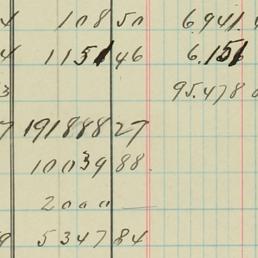 4 108 50 6.941.
4 1151 46 6.151
3 95.478 0
7 191888 27
9 1003 88
2000 —
9 5347 84